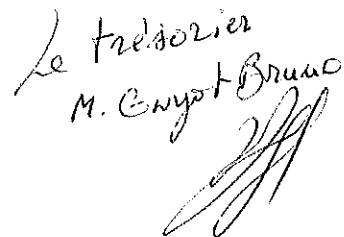 Le trésorier
M. Guyot Bruno